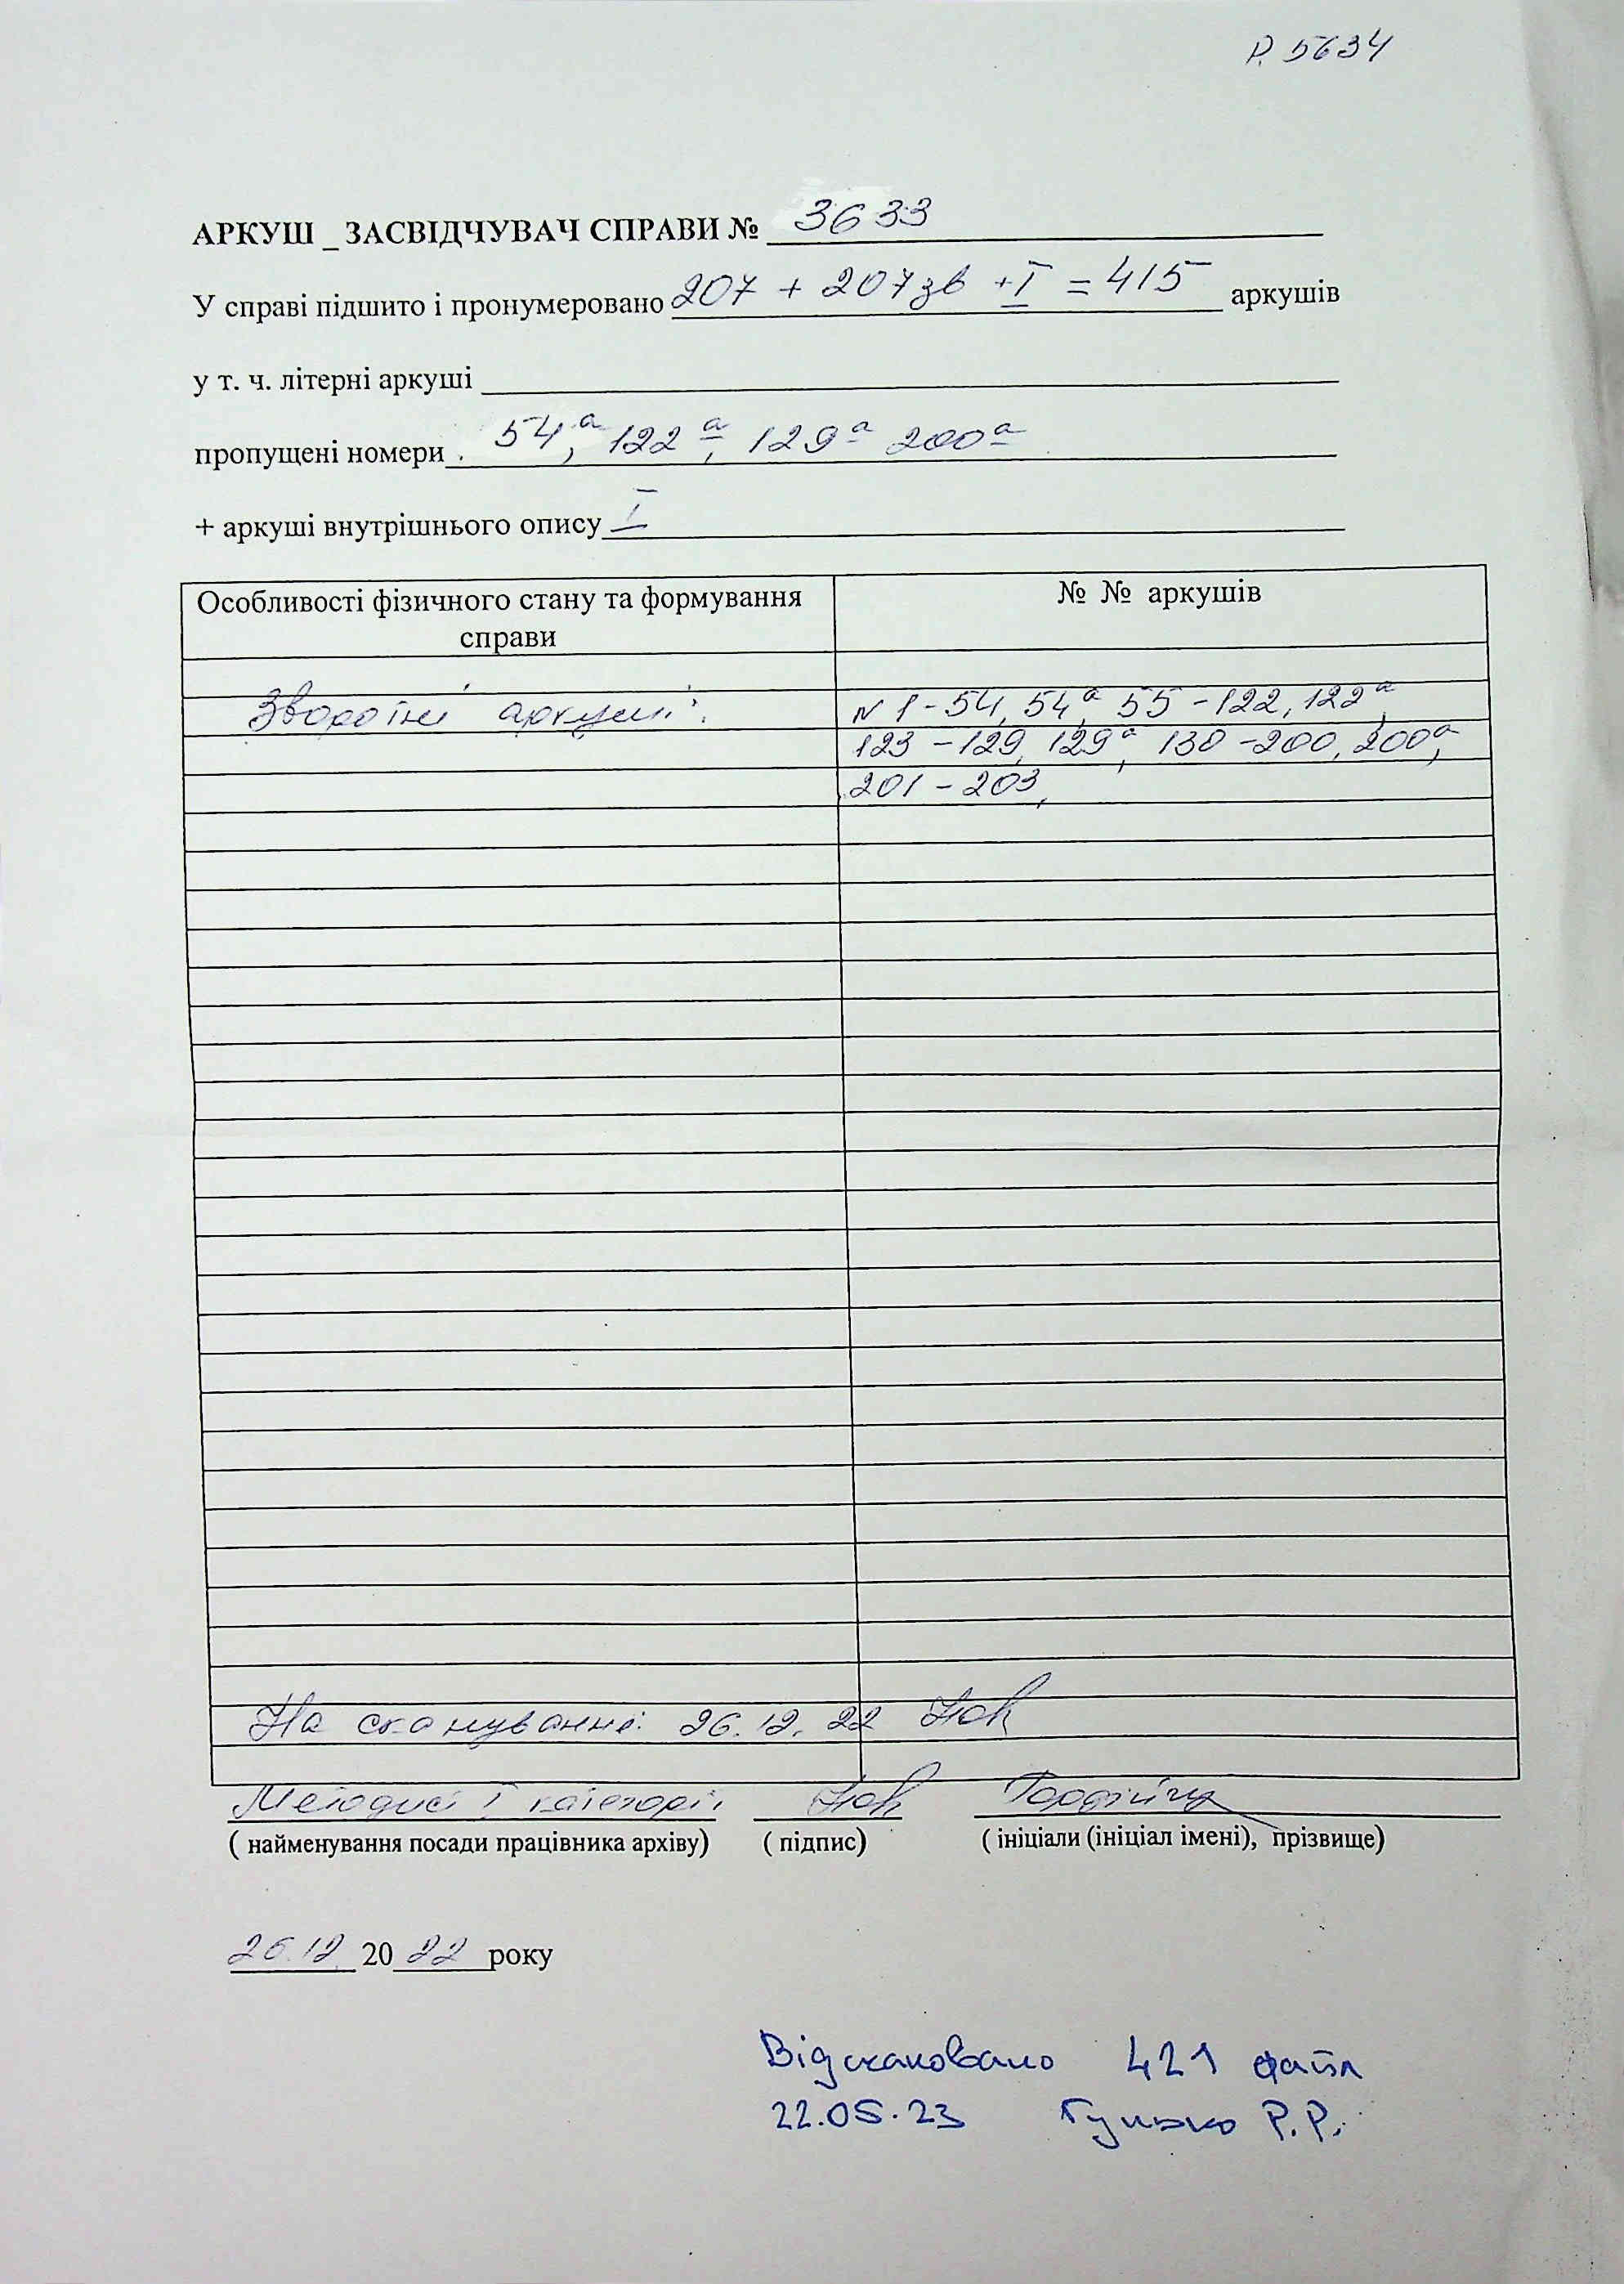 Р. 5634
АРКУШ _ ЗАСВІДЧУВАЧ СПРАВИ № 3633
У справі підшито і пронумеровано 207 + 207зв + I = 415 аркушів
у т. ч. літерні аркуші
пропущені номери 54а, 122а, 129а 200а
+ аркуші внутрішнього опису I
Особливості фізичного стану та формування справи
№ № аркушів
Зворотні аркуші:
N 1-54, 54а, 55-122, 122а,
123-129, 129а, 130-200, 200а,
201-203,
На сканування: 26.12.22
Методист I категорії
( найменування посади працівника архіву) ( підпис) ( ініціали (ініціал імені), прізвище)
26.12. 2022 року
Відскановано 421 файл
22.05.23 Р.Р.